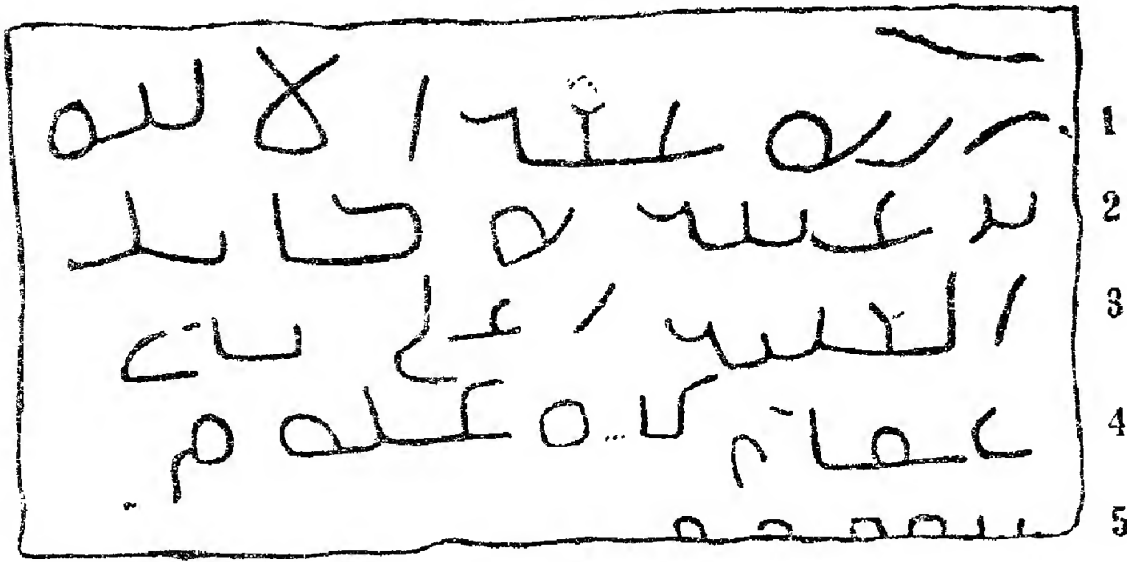 1 الله غفرا لاليه
2 بن عبيده كاتب
3 الخليد اعلى بني
4 عمري كتبه عنه من
5